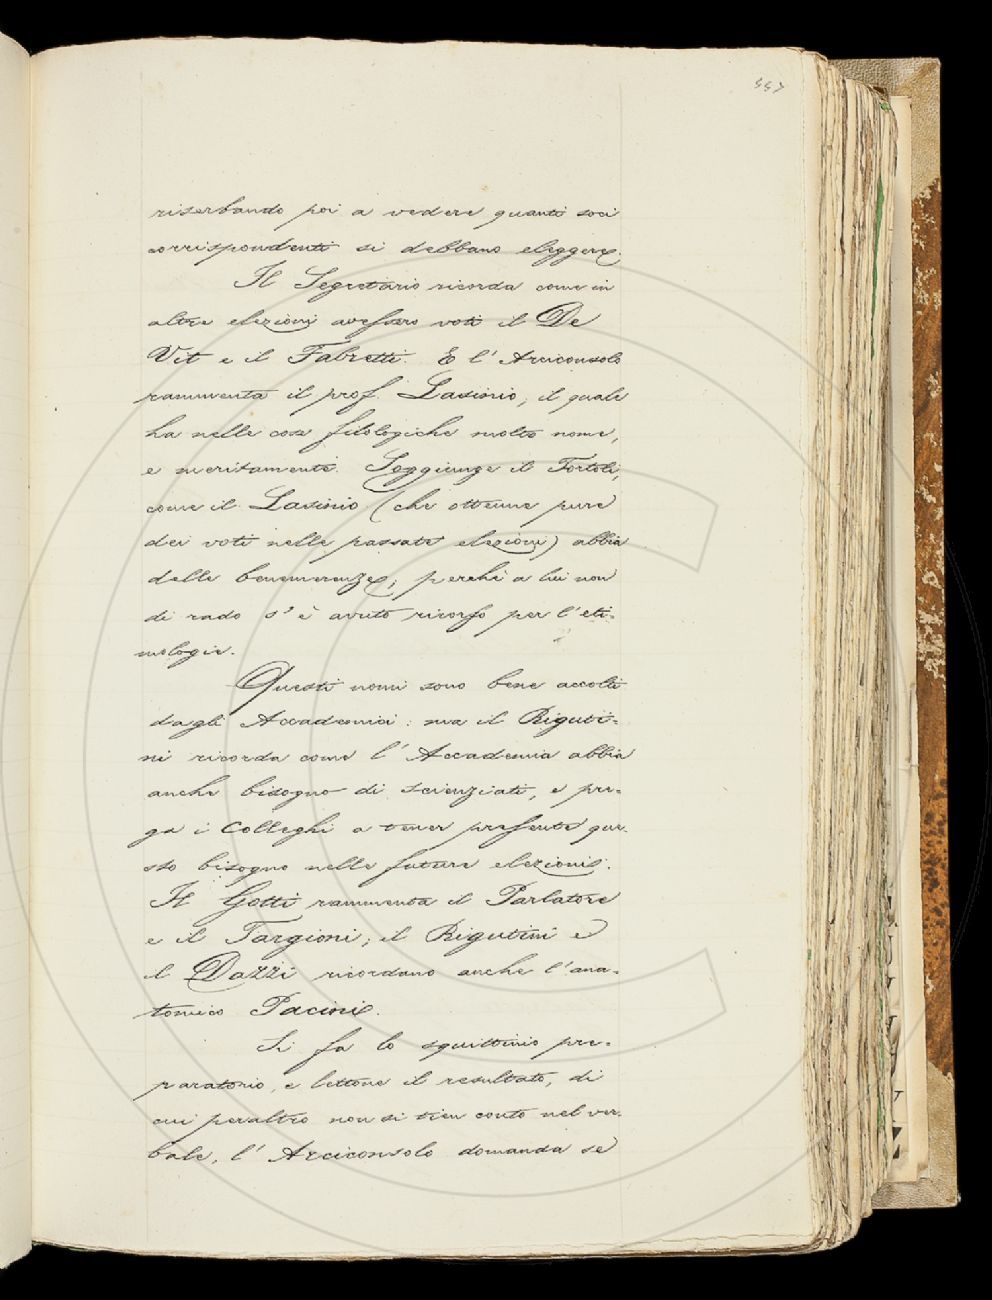 557
riserbando poi a vedere quanti soci
corrispondenti si debbano eleggere.
Il Segretario ricorda come in
altre elezioni avessero voti il De
Vit e il Fabretti. E l'Arciconsolo
rammenta il prof. Lasinio, il quale
ha nelle cose filologiche molto nome,
e meritamente. Soggiunge il Tortoli,
come il Lasinio (che ottenne pure
dei voti nelle passate elezioni) abbia
delle benemerenze, perchè a lui non
di rado s'è avuto ricorso per l'eti-
mologie.
Questi nomi sono bene accolti
dagli Accademici: ma il Riguti-
ni ricorda come l'Accademia abbia
anche bisogno di scienziati, e pre-
ga i Colleghi a tener presente que-
sto bisogno nelle future elezioni.
Il Gotti rammenta il Parlatore
e il Targioni; il Rigutini e
il Dazzi ricordano anche l'ana-
tomico Pacini.
Si fa lo squittinio pre-
paratorio, e lettone il resultato, di
cui peraltro non si tien conto nel ver-
bale, l'Arciconsolo domanda se